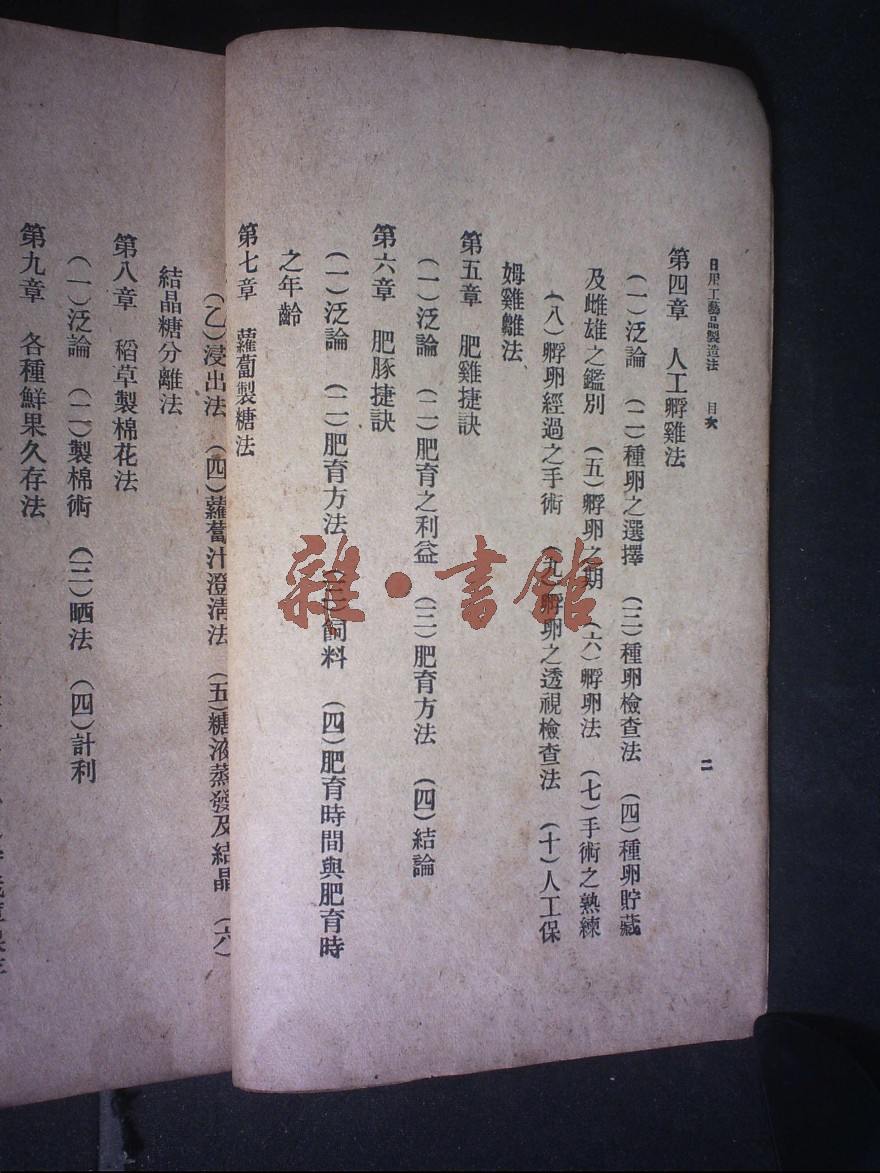 日用工藝品製造法　目次　二
第四章　人工孵雞法
（一）泛論　（二）種卵之選擇　（三）種卵檢查法　（四）種卵貯藏
及雌雄之鑑別　（五）孵卵之期　（六）孵卵法　（七）手術之熟練
（八）孵卵經過之手術　（九）孵卵之透視檢查法　（十）人工保
姆雞雛法
第五章　肥雞捷訣
（一）泛論　（二）肥育之利益　（三）肥育方法　（四）結論
第六章　肥豚捷訣
（一）泛論　（二）肥育方法　（三）飼料　（四）肥育時間與肥育時
之年齡
第七章　蘿蔔製糖法
（乙）浸出法　（四）蘿蔔汁澄清法　（五）糖液蒸發及結晶　（六）
結晶糖分離法
第八章　稻草製棉花法
（一）泛論　（二）製棉術　（三）晒法　（四）計利
第九章　各種鮮果久存法
雜・書館